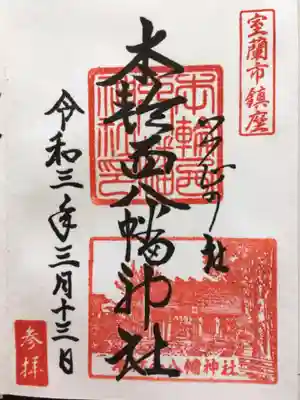 室蘭市鎮座
本輪西八幡神社
令和三年三月十三日
参拝
八幡神社